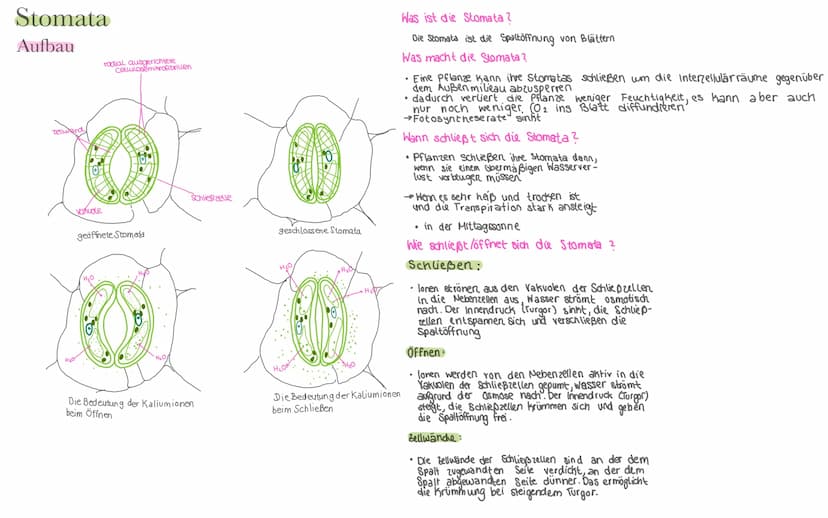 Stomata
Aufbau
radial ausgerichtete
Cellulosemikrofibrillen
Zellwand
Vakuole
Schließzelle
geöffnete Stomata
geschlossene Stomata
H₂O
H₂O
H₂O
H₂O
H₂O
H₂O
H₂O
H₂O
H₂O
Die Bedeutung der Kaliumionen
beim Öffnen
Die Bedeutung der Kaliumionen
beim Schließen
Was ist die Stomata?
Die Stomata ist die Spaltöffnung von Blättern
Was macht die Stomata?
• Eine Pflanze kann ihre Stomatas schließen um die Interzellulärräume gegenüber
dem Außenmilieu abzusperren
• dadurch verliert die Pflanze weniger Feuchtigkeit, es kann aber auch
nur noch weniger CO₂ ins Blatt diffundieren
→ Fotosyntheserate sinkt
Wann schließt sich die Stomata?
• Pflanzen schließen ihre Stomata dann,
wenn sie einem übermäßigen Wasserver-
lust vorbeugen müssen
→ Wenn es sehr heiß und trocken ist
und die Transpiration stark ansteigt
• in der Mittagssonne
Wie schließt/öffnet sich die Stomata?
Schließen:
• Ionen strömen aus den Vakuolen der Schließzellen
in die Nebenzellen aus, Wasser strömt osmotisch
nach. Der Innendruck (Turgor) sinkt, die Schließ-
zellen entspannen sich und verschließen die
Spaltöffnung
Öffnen:
• Ionen werden von den Nebenzellen aktiv in die
Vakuolen der Schließzellen gepumt, Wasser strömt
aufgrund der Osmose nach. Der Innendruck (Turgor)
steigt, die Schließzellen krümmen sich und geben
die Spaltöffnung frei.
Zellwände:
• Die Zellwände der Schließzellen sind an der dem
Spalt zugewandten Seite verdickt, an der dem
Spalt abgewandten Seite dünner. Das ermöglicht
die Krümmung bei steigendem Turgor.